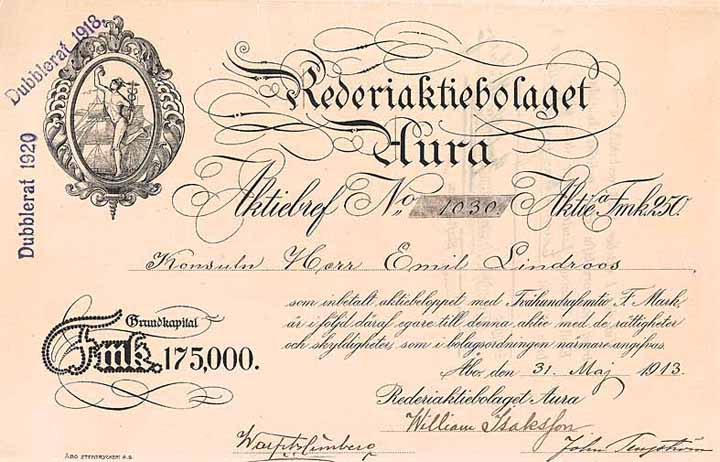 Dubblerat 1918.
Dubblerat 1920
Rederiaktiebolaget
Aura
Aktiebref No 1030. Aktie a Fmk. 250.
Konsuln Herr Emil Lindroos
som inbetalt aktiebeloppet med Tvåhundrafemtio F. Mark,
är i följd däraf egare till denna aktie med de rättigheter
och skyldigheter, som i bolagsordningen närmare angifvas.
Grundkapital
Fmk. 175,000.
Åbo, den 31. Maj 1913.
Rederiaktiebolaget Aura
William Isaksson
John
ÅBO STENTRYCKERI A.B.